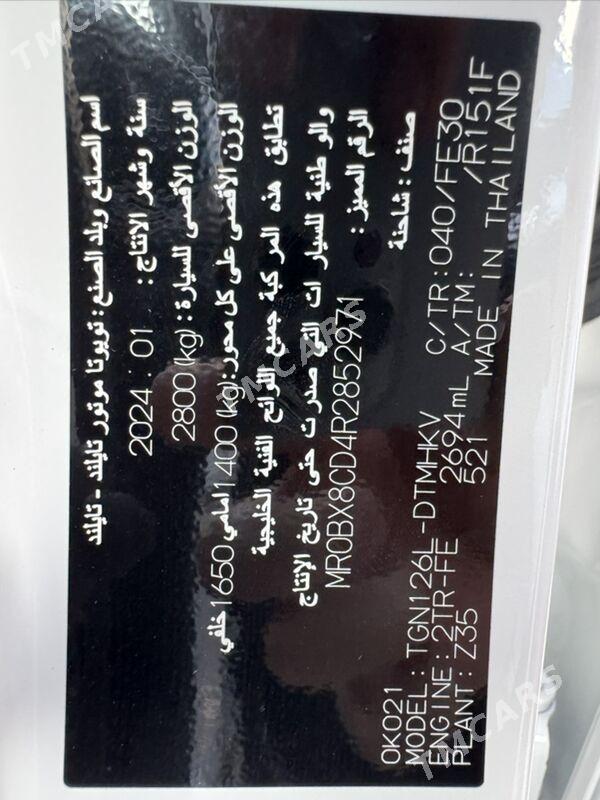 اسم الصانع وبلد الصنع : تويوتا موتور تايلند - تايلند
سنة وشهر الانتاج : 2024 : 01
الوزن الأقصى للسيارة : 2800 (kg)
الوزن الأقصى على كل محور : 1400 (kg) امامي 1650 خلفي
تطابق هذه المركبة جميع اللوائح الفنية الخليجية
والوطنية للسيارات التي صدرت حتى تاريخ الإنتاج
الرقم المميز : MR0BX8CD4R2852971
صنف : شاحنة
0K021
MODEL : TGN126L-DTMHKV C/TR : 040/FE30
ENGINE : 2TR-FE 2694mL A/TM: /R151F
PLANT : Z35 521 MADE IN THAILAND
TMCARS
TMCARS
TMCARS
TMCARS
TMCARS